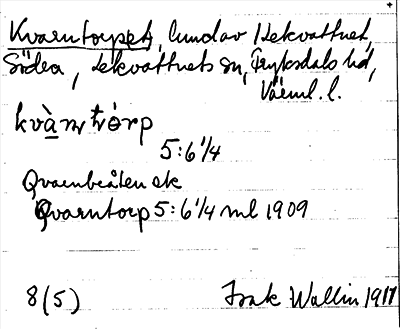 Kvarntorpet, lund av Lekvattnet,
Södra, Lekvattnets sn, Fryksdals hd,
Värml. l.
kvà̲ɳtórp
5:6 1/4
Qvarnbråten ek
Qvarntorp 5:6 1/4 ml 1909
8(5) Frak Wallin 1917